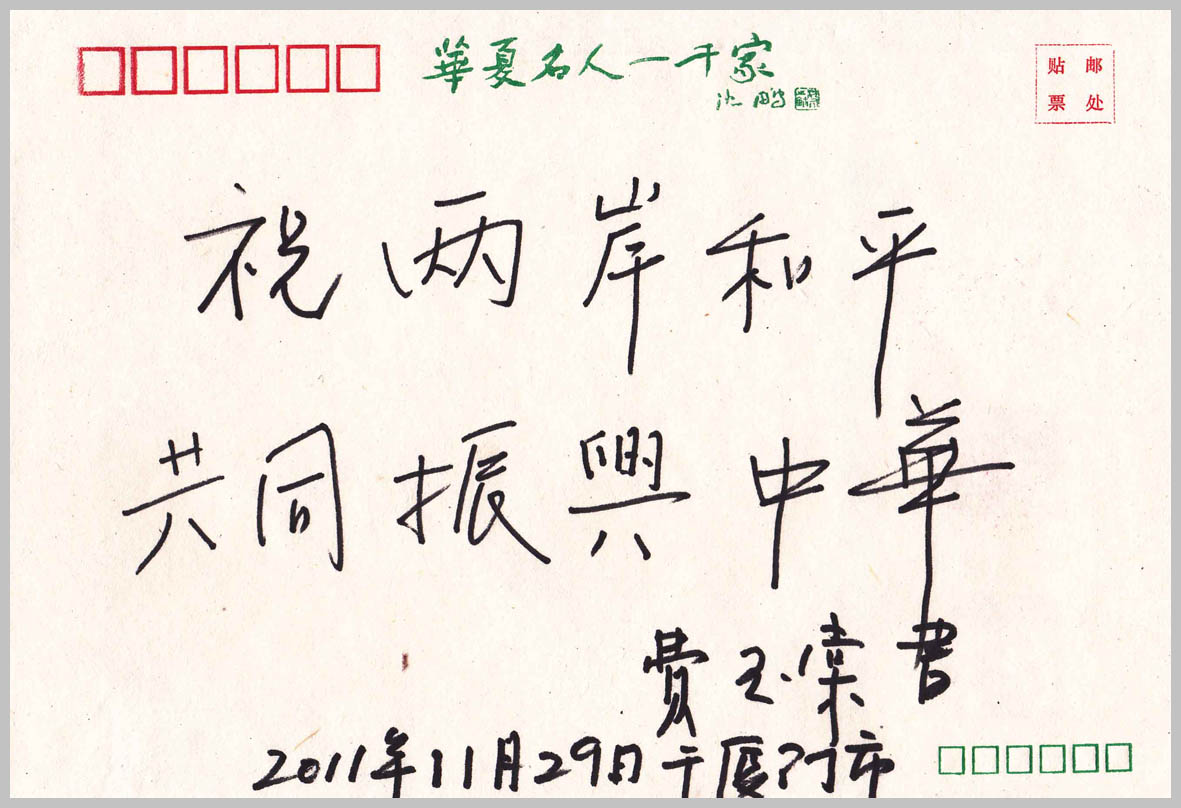 華夏名人一千家
沈鹏
贴 邮
票 处
祝两岸和平
共同振興中華
玉棠書
2011年11月29日于厦门市